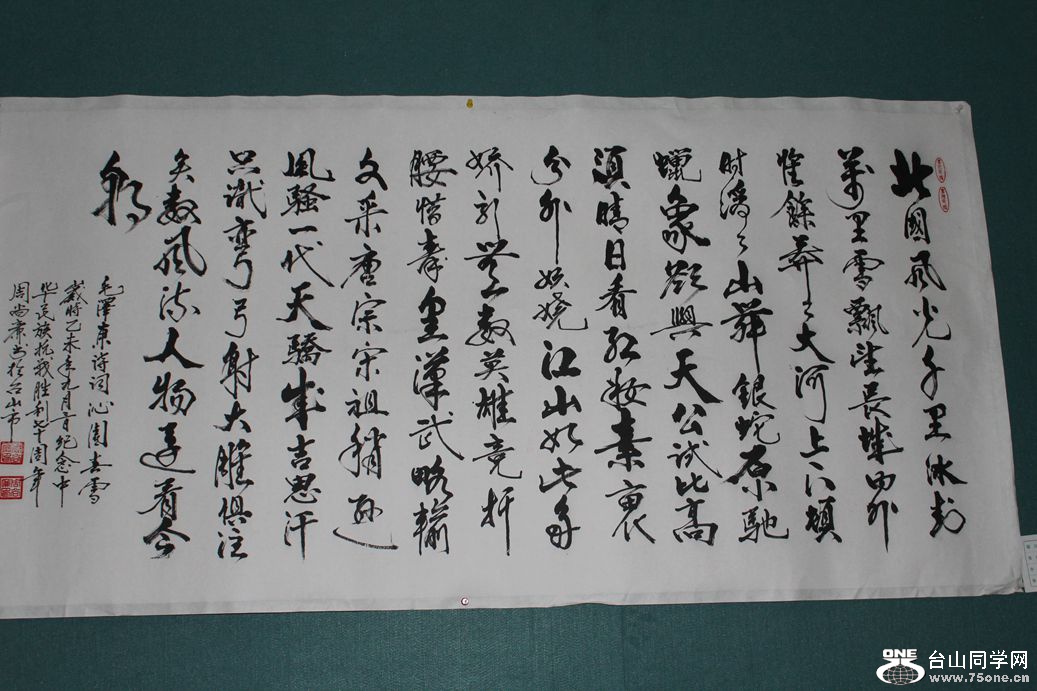 北國風光千里冰封
萬里雪飄望長城內外
惟餘莽々大河上下頓
時滔々山舞銀蛇原馳
蠟象欲與天公試比高
須晴日看紅妝素裹
分外妖嬈江山如此多
嬌引無數英雄競折
腰惜秦皇漢武略輸
文采唐宗宋祖稍遜
風騷一代天驕成吉思汗
只識彎弓射大雕俱往
矣數風流人物還看今
朝
毛澤東诗词沁園春雪
歲時乙未年九月三日纪念中
华民族抗战胜利七十周年
周尚肃书於台山市
ONE
台山同学网
www.75one.cn